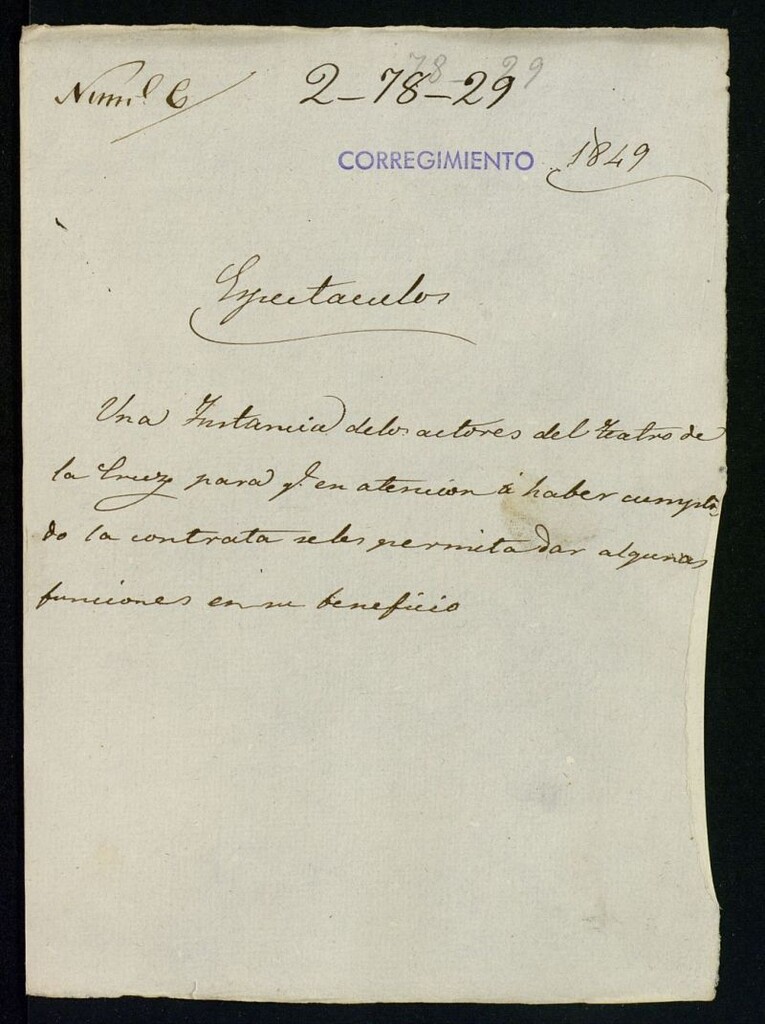 Numº 6 2-78-29
78-29
CORREGIMIENTO 1849
Espectaculos
Una Instancia de los actores del teatro de
la Cruz para q.e en atencion á haber cumpli
do la contrata se les permita dar algunas
funciones en su beneficio